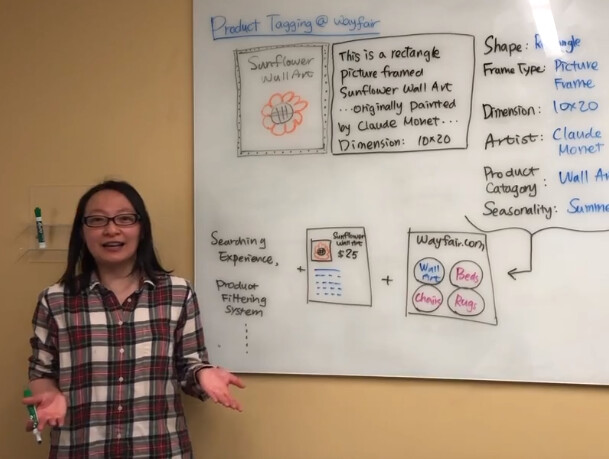 Product Tagging @ wayfair
Sunflower
Wall Art
This is a rectangle
picture framed
Sunflower Wall Art
...originally painted
by Claude Monet...
Dimension: 10x20
Shape: Rectangle
Frame Type: Picture
Frame
Dimension: 10x20
Artist: Claude
Monet
Product
Catagory: Wall Ar
Seasonality: Summe
Searching
Experience,
Product
Filtering
System
+
Sunflower
Wall Art
$25
+
Wayfair.com
Wall
Art
Beds
Chairs
Rugs